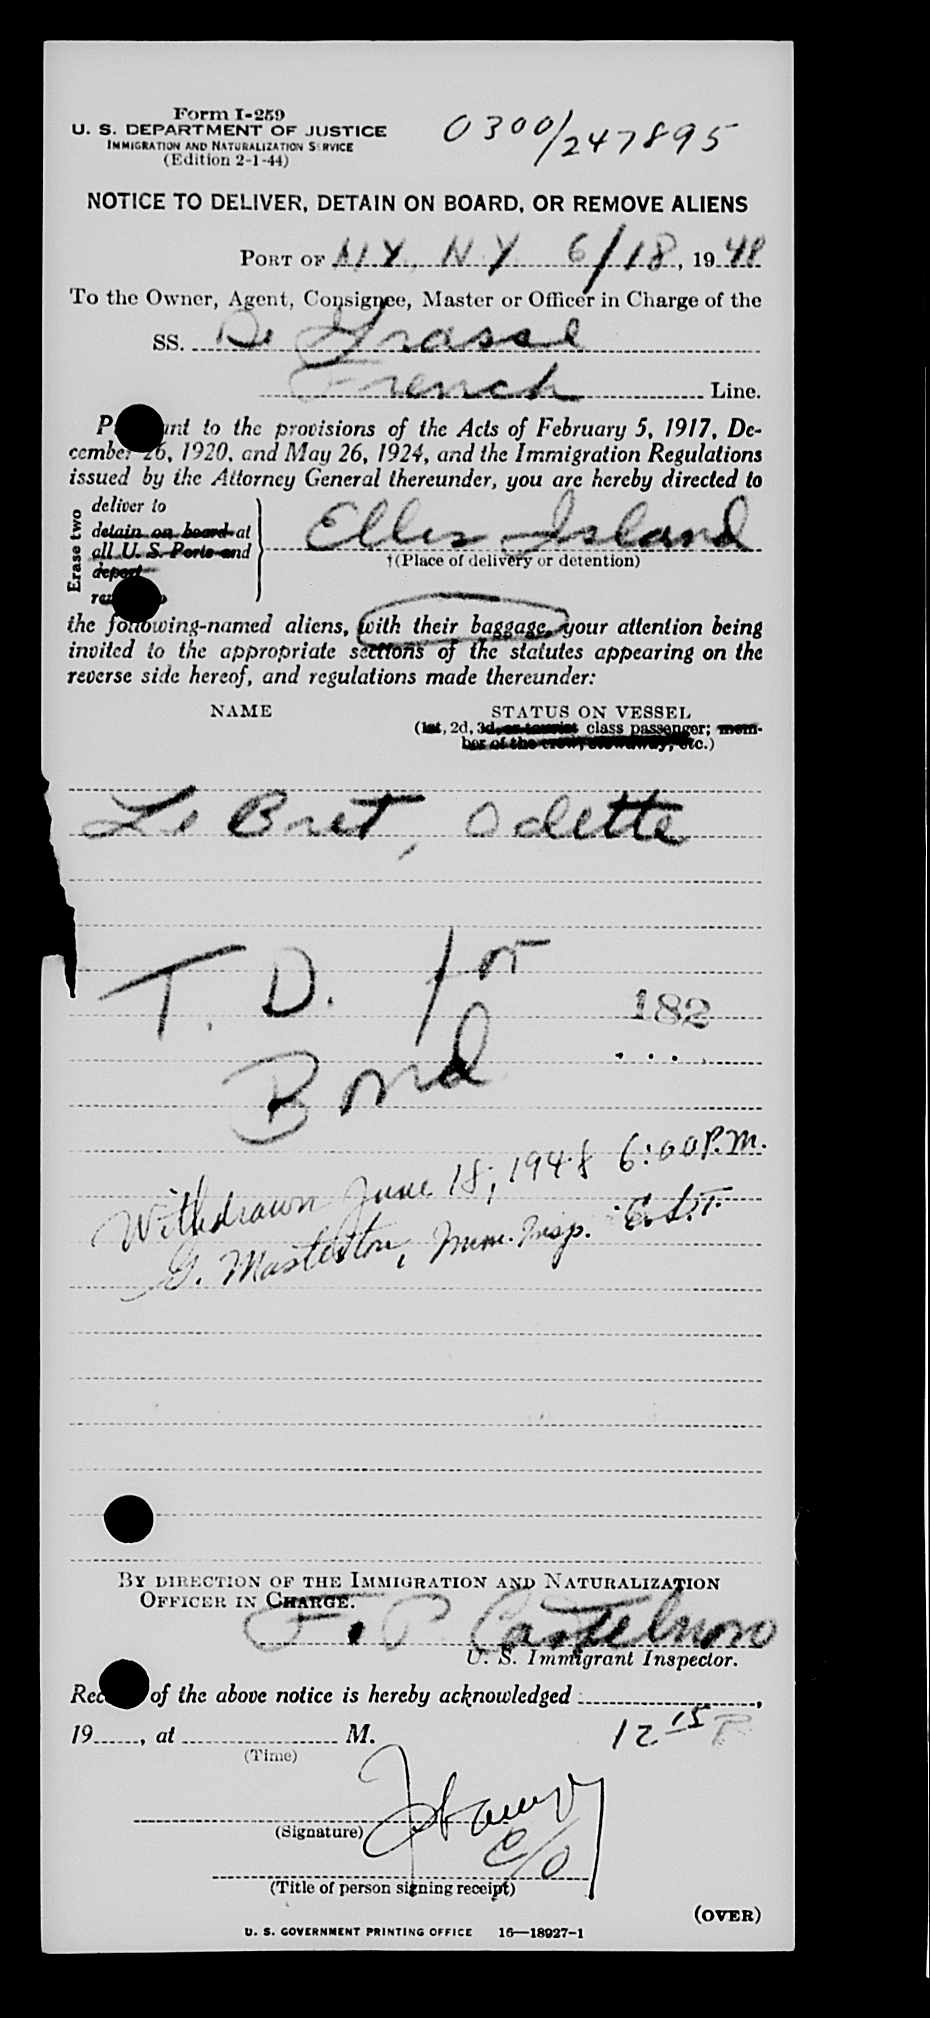 Form I-259
U. S. DEPARTMENT OF JUSTICE
IMMIGRATION AND NATURALIZATION SERVICE
(Edition 2-1-44)
0300/247895
NOTICE TO DELIVER, DETAIN ON BOARD, OR REMOVE ALIENS
PORT OF N.Y., N.Y. 6/18, 1948
To the Owner, Agent, Consignee, Master or Officer in Charge of the
SS. De Grasse
French Line.
Pursuant to the provisions of the Acts of February 5, 1917, De-
cember 26, 1920, and May 26, 1924, and the Immigration Regulations
issued by the Attorney General thereunder, you are hereby directed to
Erase two
deliver to
detain on board at
all U. S. Ports and
deport
Ellis Island
†(Place of delivery or detention)
the following-named aliens, with their baggage, your attention being
invited to the appropriate sections of the statutes appearing on the
reverse side hereof, and regulations made thereunder:
NAME STATUS ON VESSEL
(1st, 2d, 3d, or tourist class passenger; mem-
ber of the crew, stowaway, etc.)
Le Bret, Odette
T. D. for
182
Bond
Withdrawn June 18, 1948 6:00 P.M.
G. Masterton, Imm. Insp. E.S.T.
BY DIRECTION OF THE IMMIGRATION AND NATURALIZATION
OFFICER IN CHARGE.
F. P. Castelnovo
U. S. Immigrant Inspector.
Receipt of the above notice is hereby acknowledged
19......, at .................... M. 12 15 P
(Time)
(Signature)
C/O
(Title of person signing receipt)
(OVER)
U. S. GOVERNMENT PRINTING OFFICE 16—18927-1